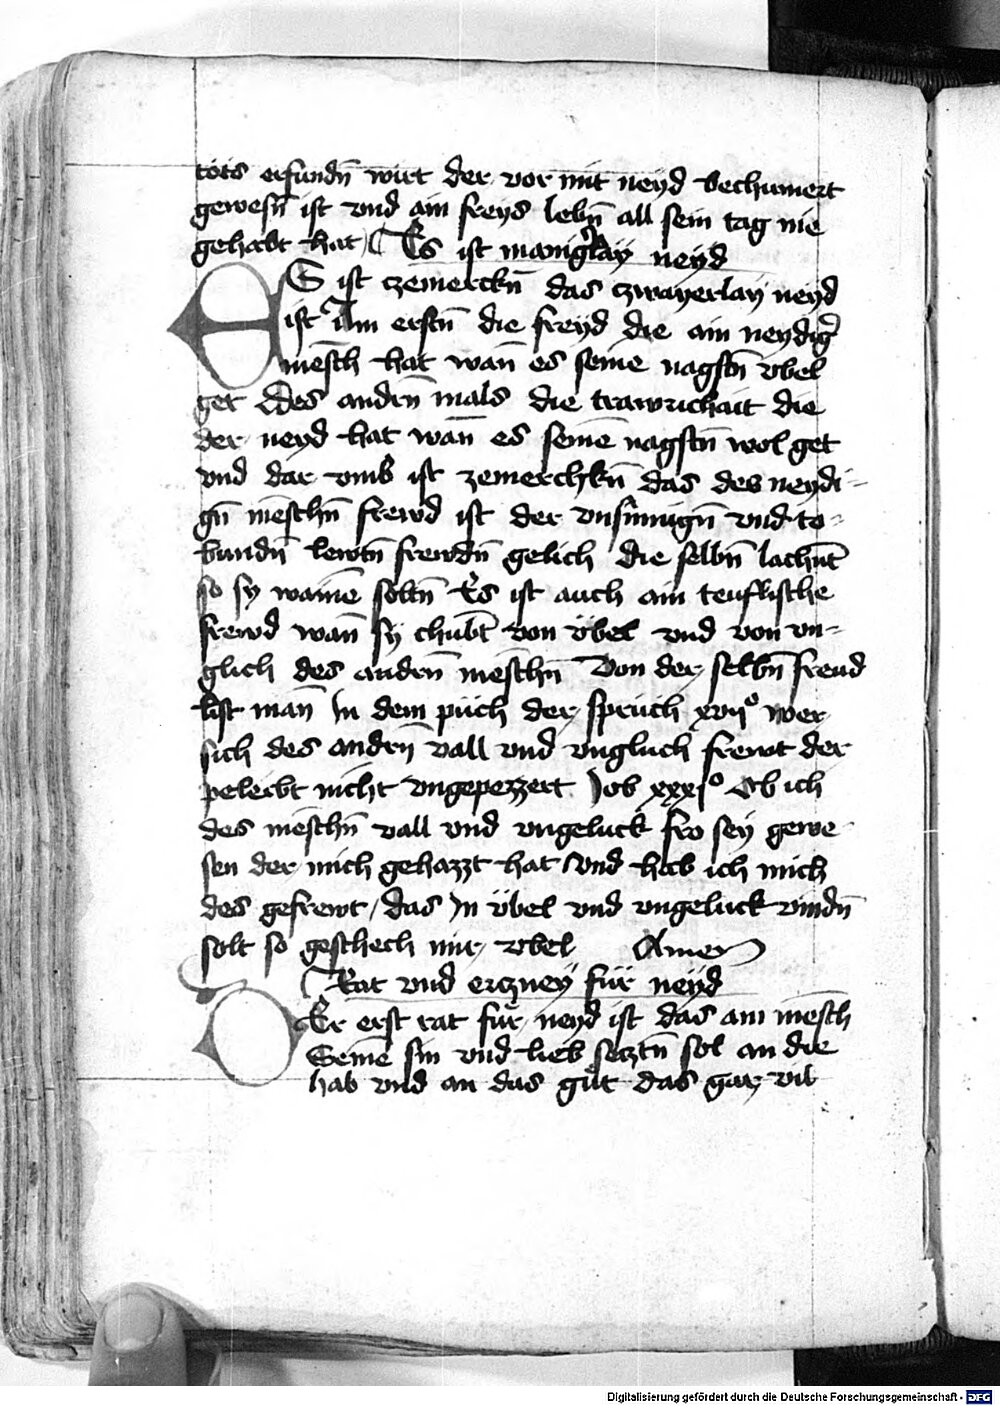 tots erfundn̄ wirt der vor mit neyd bechumert
gewesn̄ ist vnd ain freys lebn̄ all sein tag nie
gehabt hat Es ist manigͬlay neyd
ES ist czemerckn̄ das czwayerlay neyd
ist Am erstn̄ die freyd die ain neydigͬ
mēsch hat wan̄ es seinē nagstn̄ vbel
get Des andrn̄ mals die trawrichait die
der neyd hat wan̄ es seinē nagstn̄ wol get
vnd dar vmb ist zemerchkn̄ das des neydi-
gn̄ mēschn̄ frewd ist der vnsin̄nign̄ vnd to-
bundn̄ lewtn̄ frewdn̄ gelich die selbn̄ lachn̄t
so sy wainē soltn̄ Es ist auch ain teuflische
frewd wan̄ sy chūbt von übel vnd von vn-
glich des andrn̄ mēschn̄ Von der selbn̄ freud
list man̄ In dem püch der sprüch xvijº wer
sich des andrn̄ vall vnd vngluch frewt der
peleibt nicht vngepezzert Job xxxjº Ob ich
des mēschn̄ vall vnd vngeluck fro sey gewe
sen der mich gehazzt hat Vnd hab ich mich
des gefrewt / das In übel vnd vngeluck vindn̄
solt so geschech mir vbel Amen
Rat vnd erczney für neyd
DEr erst rat für neyd ist das ain mēsch
Seinē sin vnd lieb seztn̄ sol an die
hab vnd an das gůt das gar vil
Digitalisierung gefördert durch die Deutsche Forschungsgemeinschaft - DFG